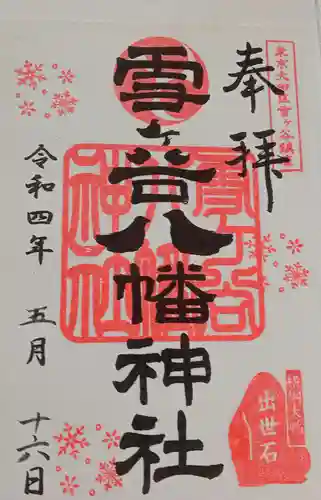 奉拝
東京大田区雪ヶ谷鎮守
雪ヶ谷八幡神社
雪ヶ谷八幡神社
出世石
令和四年 五月 十六日